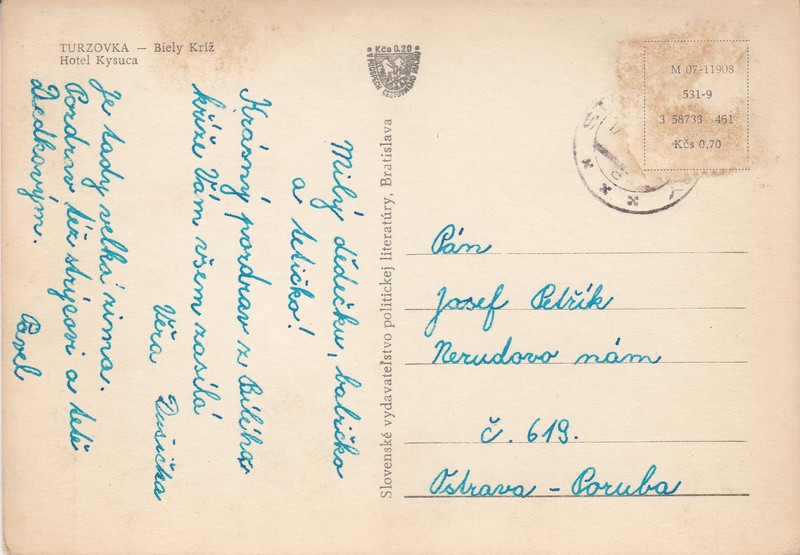 TURZOVKA — Biely Kríž
Hotel Kysuca
Kčs 0.20
V HODNOTE CESTOVNÉHO
M 07-11908
531-9
3 58733 461
Kčs 0,70
Milý dědečku, babičko
a tetičko!
Krásný pozdrav z Bílého
kříže Vám všem zasílá
Věra Dušička
Je tady velká zima.
Pozdrav též strýcovi a tetě
Dedkovým.
Pavel
Slovenské vydavateľstvo politickej literatúry, Bratislava
Pán
Josef Petřík
Nerudovo nám
č. 619.
Ostrava - Poruba